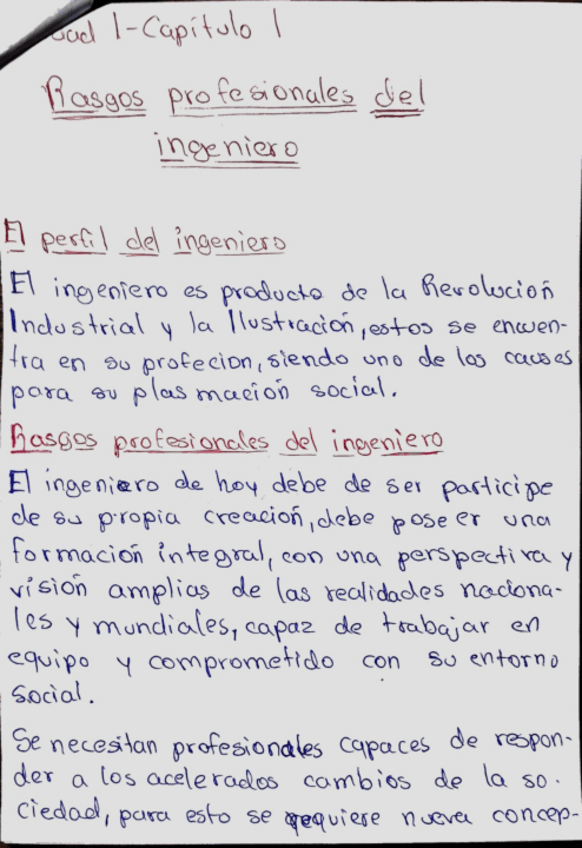 dad 1-Capítulo 1
Rasgos profesionales del
ingeniero
El perfil del ingeniero
El ingeniero es producto de la Revolución
Industrial y la Ilustración, estos se encuen-
tra en su profecion, siendo uno de los causes
para su plasmación social.
Rasgos profesionales del ingeniero
El ingeniero de hoy debe de ser participe
de su propia creación, debe poseer una
formación integral, con una perspectiva y
visión amplias de las realidades naciona-
les y mundiales, capaz de trabajar en
equipo y comprometido con su entorno
social.
Se necesitan profesionales capaces de respon-
der a los acelerados cambios de la so-
ciedad, para esto se requiere nueva concep-